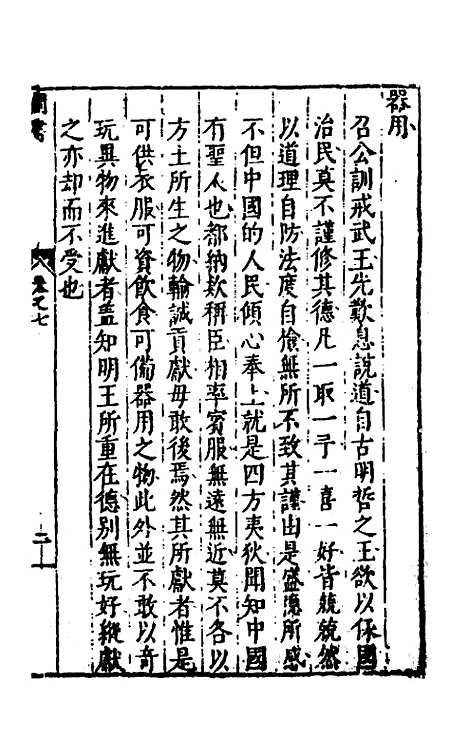 器用
召公訓戒武王先歎息說道自古明哲之王欲以保國
治民莫不謹修其德凡一取一予一喜一好皆兢兢然
以道理自防法度自檢無所不致其謹由是盛德所感
不但中國的人民傾心奉上就是四方夷狄聞知中國
有聖人也都納欵稱臣相率賓服無遠無近莫不各以
方土所生之物輸誠貢獻毋敢後焉然其所獻者惟是
可供衣服可資飲食可備器用之物此外並不敢以奇
玩異物來進獻者盖知明王所重在德別無玩好縱獻
之亦却而不受也
卷之七
二